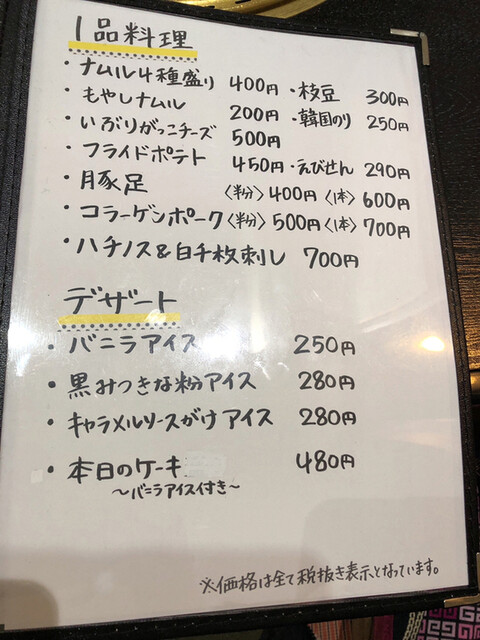 1品料理
・ナムル4種盛り 400円 ・枝豆 300円
・もやしナムル 200円 ・韓国のり 250円
・いぶりがっこチーズ 500円
・フライドポテト 450円 ・えびせん 290円
・豚足 〈半分〉400円 〈1本〉600円
・コラーゲンポーク 〈半分〉500円 〈1本〉700円
・ハチノス&白千枚刺し 700円
デザート
・バニラアイス 250円
・黒みつきな粉アイス 280円
・キャラメルソースがけアイス 280円
・本日のケーキ 480円
〜バニラアイス付き〜
※価格は全て税抜き表示となっています。